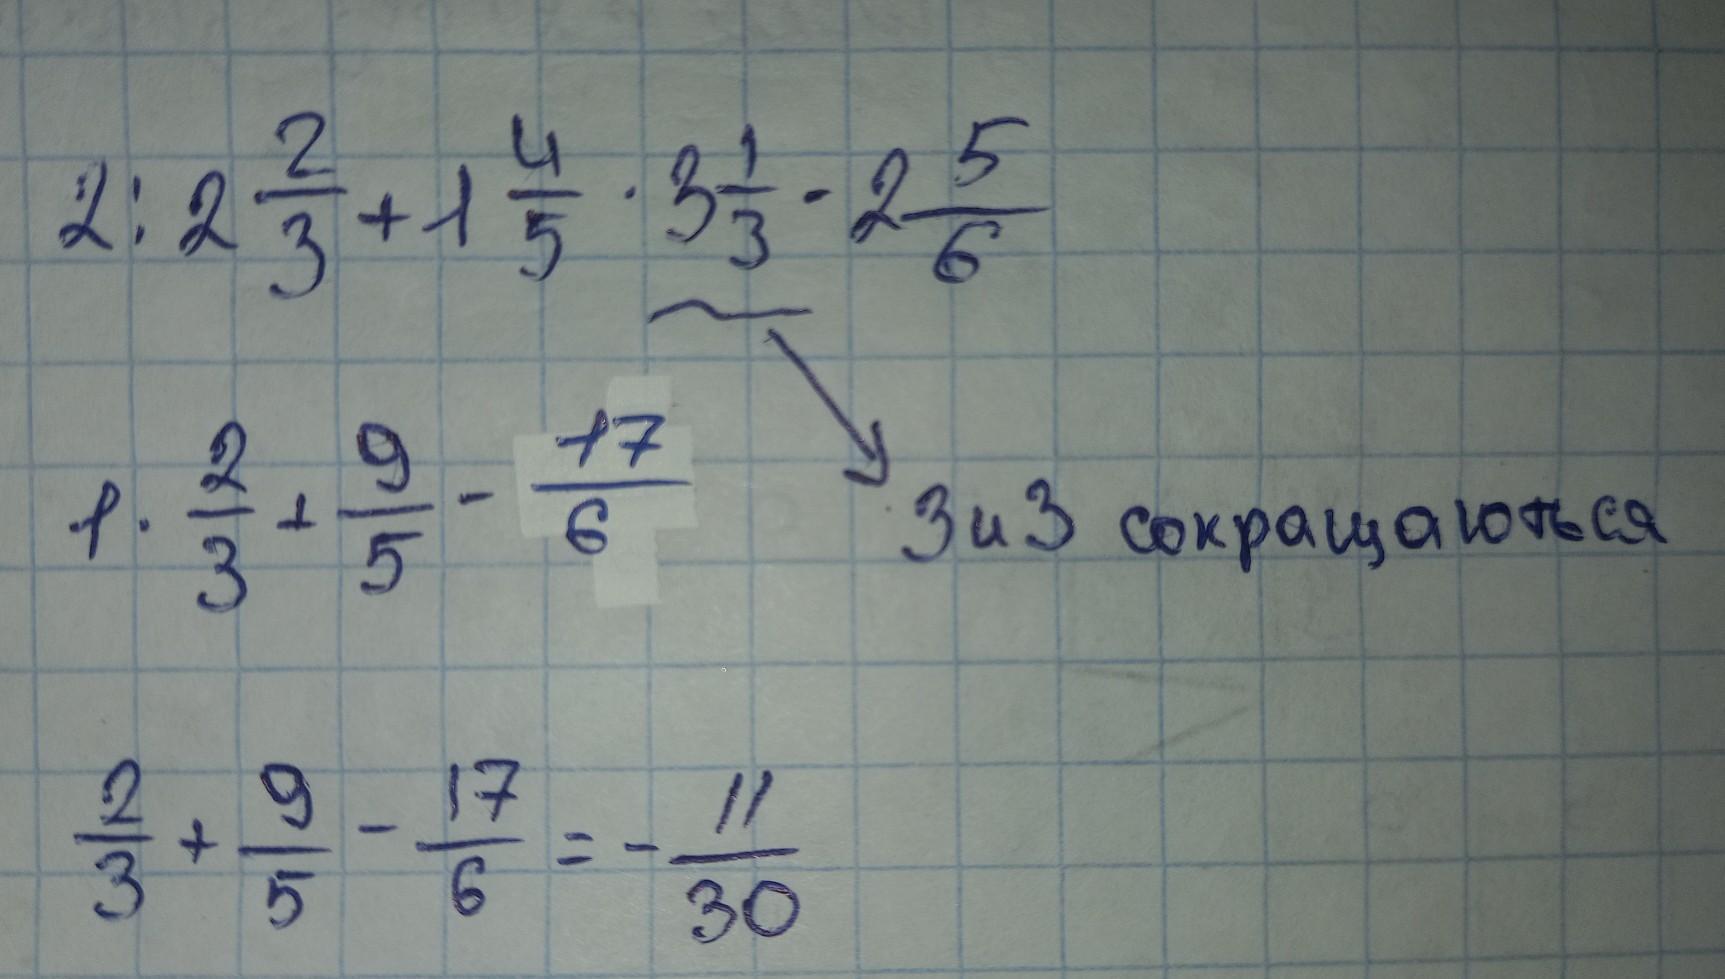 2 : 2 2/3 + 1 4/5 · 3 1/3 - 2 5/6
1 · 2/3 + 9/5 - 17/6
3 и 3 сокращаються
2/3 + 9/5 - 17/6 = - 11/30